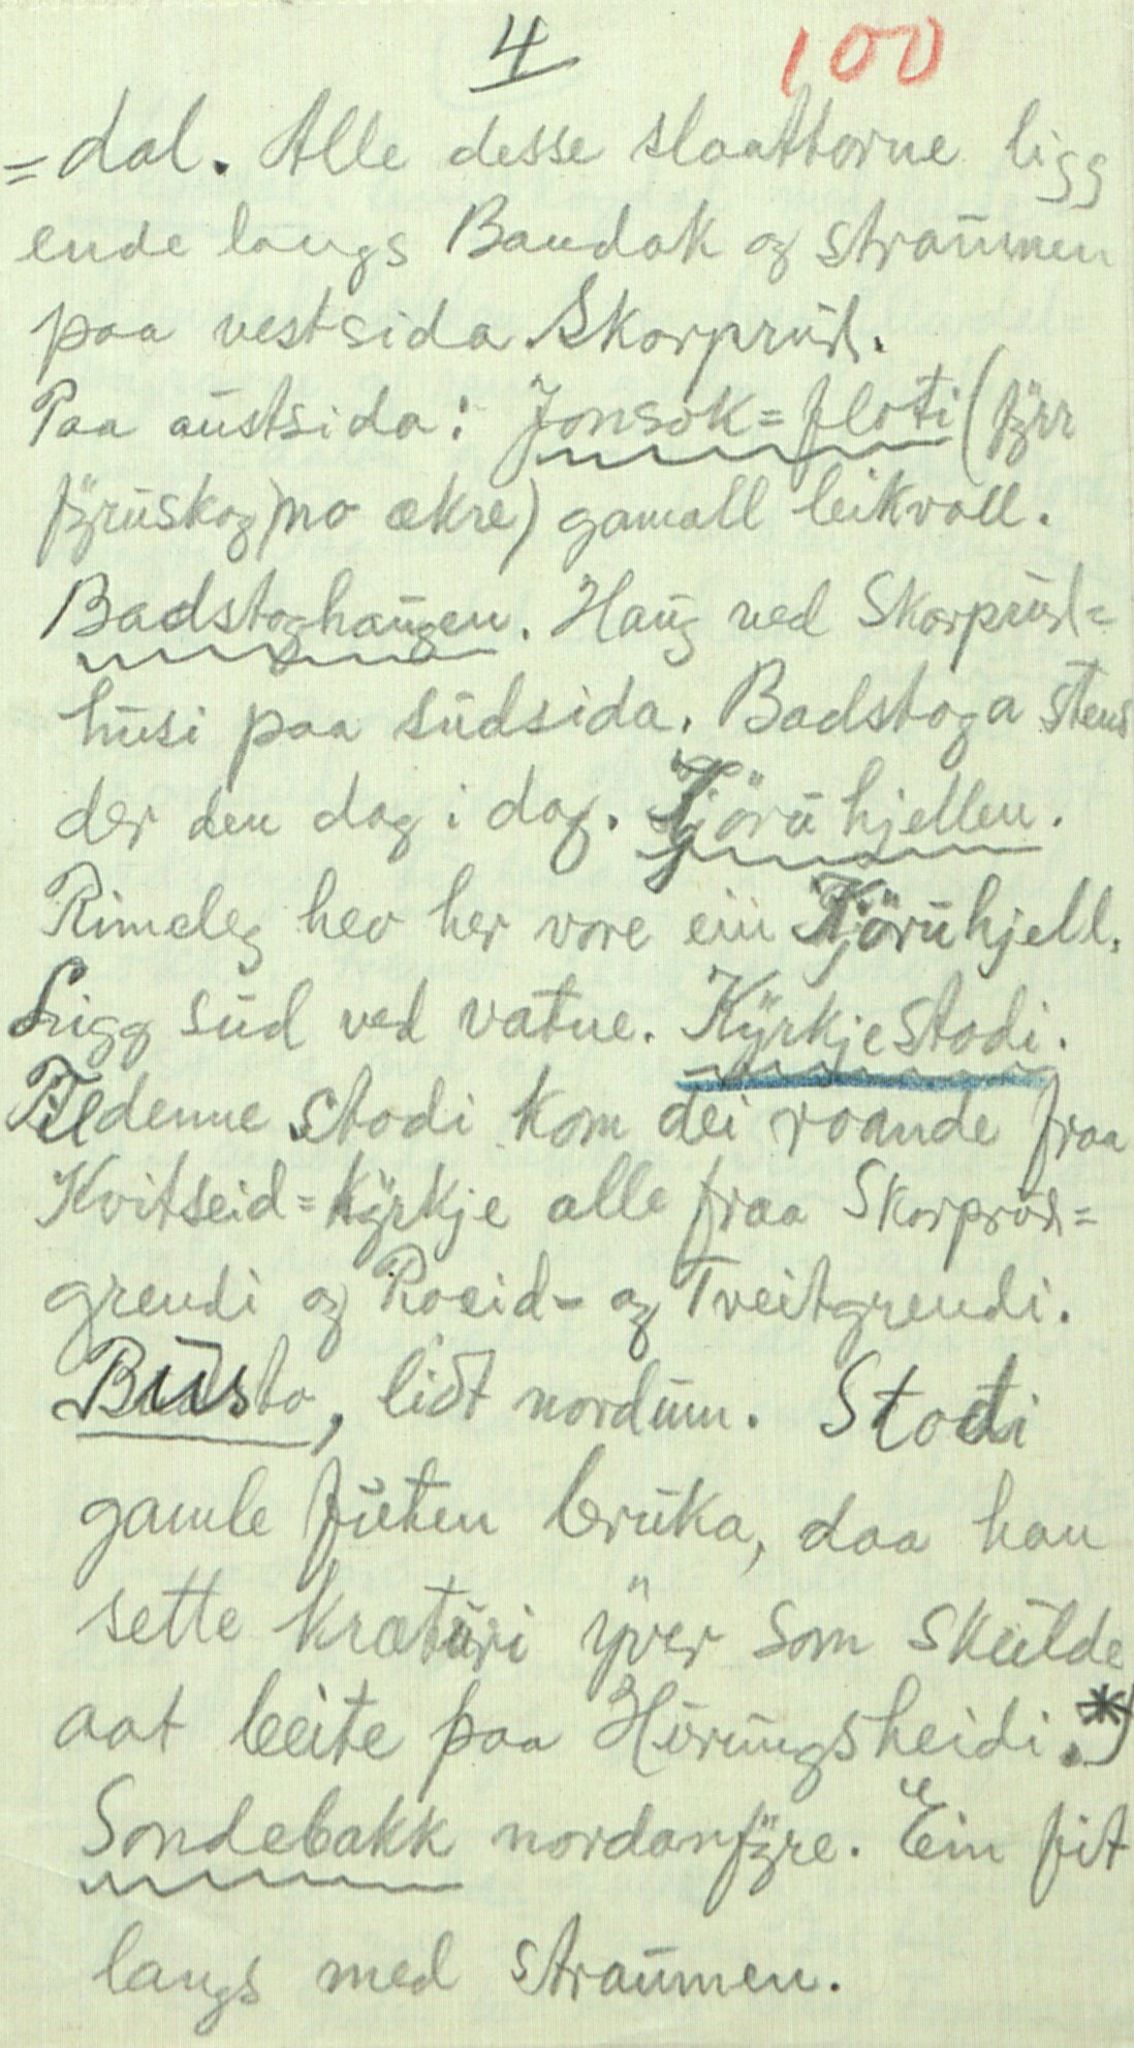 4 100
=dal. Alle desse slaattorne ligg
ende langs Bandak og straumen
paa vestsida Skorprud.
Paa austsida: Jonsok=floti (fyrr
fyruskog, no åkre) gamall leikvoll.
Badstoghaugen. Haug ved Skorprud=
husi paa sudsida. Badstoga stend
der den dag i dag. Kjöruhjellen.
Rimeleg hev her vore ein Kjöruhjell.
Ligg sud ved vatne. Kyrkjestodi.
Til denne stodi kom dei roande fraa
Kvitseid=kyrkje alle fraa Skorprud=
grendi og Roeid- og Tveitgrendi.
Busto, lidt nordum. Stodi
gamle futen bruka, daa han
sette kræturi yver som skulde
aat beite paa Hörungsheidi. *)
Sondebakk nordanfyre. Ein fit
langs med straumen.